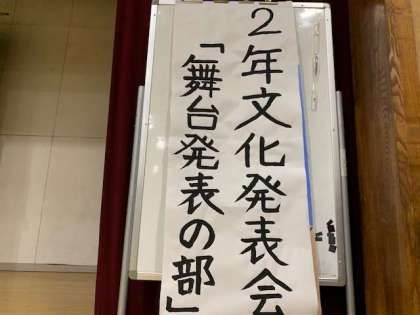 2年文化発表会
「舞台発表の部」